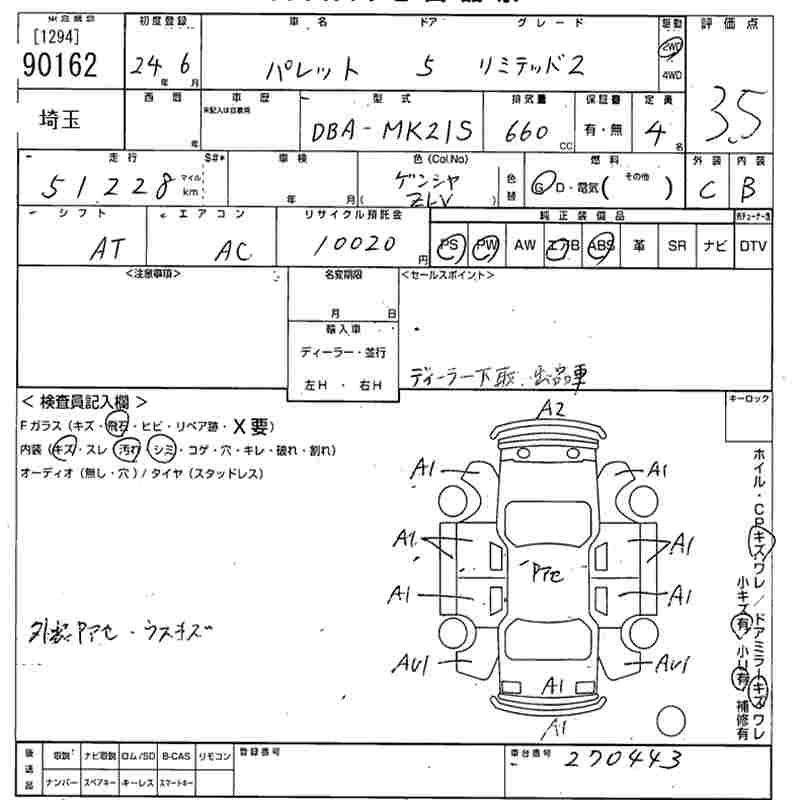 [1294]
90162
初度登録
24年 6月
車名
パレット
ドア
5
グレード
リミテッド2
駆動
2WD
4WD
評価点
3.5
埼玉
西暦
年
車歴
未記入は自家用
型式
DBA-MK21S
排気量
660 cc
保証書
有・無
定員
4名
走行
51228
マイル
km
S#*
車検
年 月
色(Col.No)
ゲンシャ
( ZLV )
色替
燃料
G D・電気( その他 )
外装
C
内装
B
シフト
AT
エアコン
AC
リサイクル預託金
10020円
純正装備品
PS PW AW エアB ABS 革 SR ナビ DTV
<注意事項>
名変期限
月 日
輸入車
ディーラー・並行
左H ・ 右H
<セールスポイント>
ディーラー下取 出品車
<検査員記入欄>
Fガラス(キズ・飛石・ヒビ・リペア跡・X要)
内装(キズ・スレ・汚れ・シミ・コゲ・穴・キレ・破れ・割れ)
オーディオ(無し・穴)/タイヤ(スタッドレス)
キーロック
A2
A1 A1
A1 A1
Pアセ
A1 A1
AU1 AU1
A1
A1
外装Pアセ・ウスキズ
ホイル・CPキズワレ/ドアミラーキズワレ
小キズ有 小U有 補修有
後送品
取説 ナビ取説 ロム/SD B-CAS リモコン
ナンバー スペアキー キーレス スマートキー
登録番号
車台番号
270443